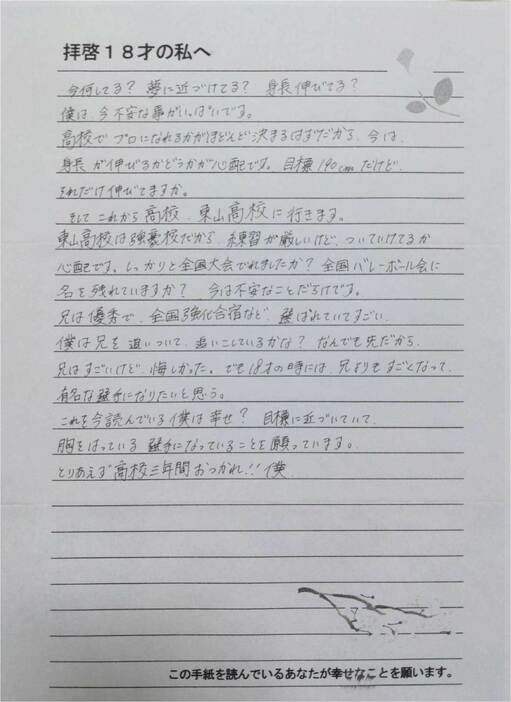 拝啓18才の私へ
今何してる？ 夢に近づけてる？ 身長伸びてる？
僕は、今不安な事がいっぱいです。
高校でプロになれるかがほどんど決まるはずだから、今は、
身長が伸びるかどうかが心配です。目標190cmだけど、
それだけ伸びてますか。
そして これから高校、東山高校に行きます。
東山高校は強豪校だから、練習が厳しいけど、ついていけてるか
心配です。しっかりと全国大会でれましたか？全国バレーボール会に
名を残れていますか？ 今は不安なことだらけです。
兄は優秀で、全国強化合宿など、選ばれていてすごい。
僕は兄を追いついて、追いこしているかな？なんでも先だから、
兄はすごいけど、悔しかった。でも18才の時には、兄よりもすごくなって、
有名な選手になりたいと思う。
これを今読んでいる僕は幸せ？ 目標に近づいていて、
胸をはっている選手になっていることを願っています。
とりあえず高校三年間おつかれ!!僕
この手紙を読んでいるあなたが幸せなことを願います。